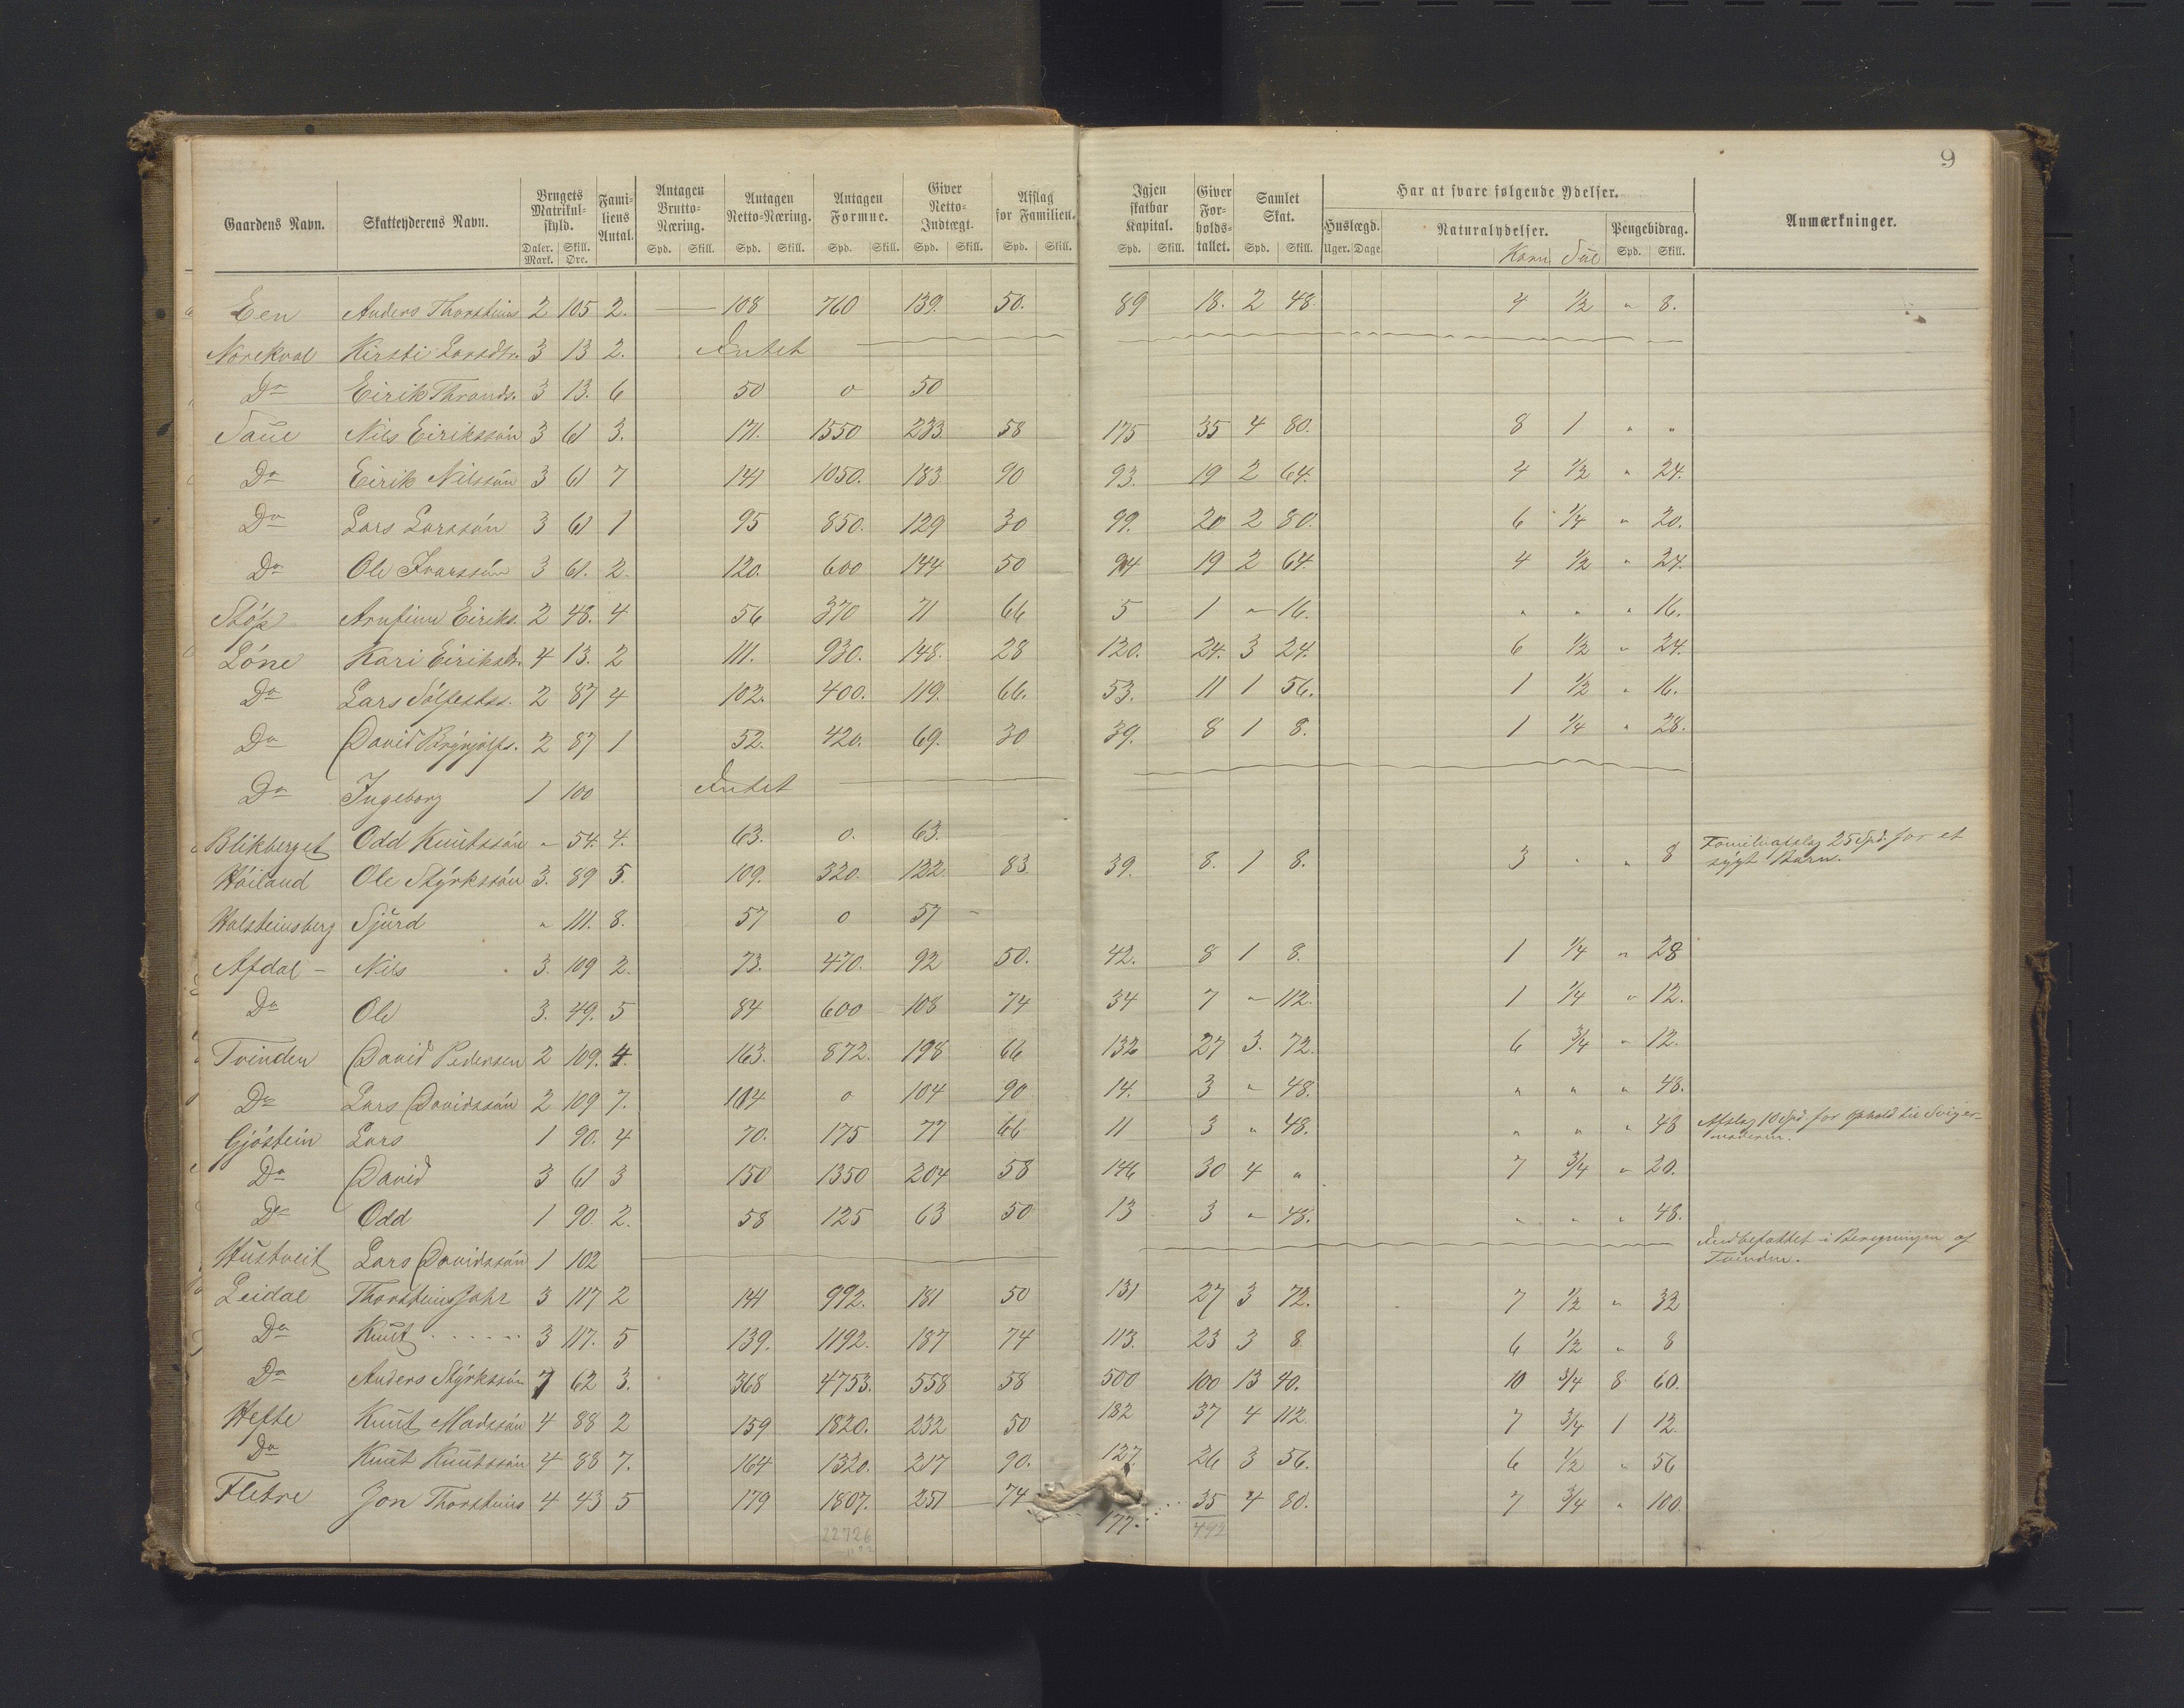 9
Gaardens Navn. Skatteyderens Navn. Brugets Matrikulskyld. Daler. Mark. Skill. Øre. Familiens Antal. Antagen Brutto-Næring. Spd. Skill. Antagen Netto-Næring. Spd. Skill. Antagen Formue. Spd. Skill. Giver Netto-Indtægt. Spd. Skill. Afslag for Familien. Spd. Skill. Igjen skatbar Kapital. Spd. Skill. Giver Forholdstallet. Samlet Skat. Spd. Skill. Har at svare følgende Ydelser. Huslægd. Uger. Dage Naturalydelser. Korn Sul Pengebidrag. Spd. Skill. Anmærkninger.
Een Anders Thorsteins 2 105 2. 108 760 139. 50. 89 18. 2 48. 4 1/2 " 8.
Norekval Kirsti Larsdtr. 3 13 2. Intet
Do Eirik Thronds. 3 13. 6 50 0 50
Saue Nils Eirikssón 3 61 3. 171. 1550 233. 58 175 35 4 80. 8 1 " "
Do Eirik Nilssón 3 61 7 141 1050. 183 90 93. 19 2 64. 4 1/2 " 24.
Do Lars Larssón 3 61 1 95 850. 129 30 99. 20 2 80. 6 1/4 " 20.
Do Ole Ivarssón 3 61. 2. 120. 600 144 50 94 19 2 64. 4 1/2 " 24.
Støp Arnfinn Eiriks. 2 48. 4 56 370 71 66 5 1 " 16. " " " 16.
Lóne Kari Eiriksd. 4 13. 2 111. 930. 148. 28 120. 24. 3 24. 6 1/2 " 24.
Do Lars Sólfestss. 2 87 4 102. 400. 119. 66. 53. 11 1 56. 1 1/2 " 16.
Do David Brynjólfs. 2 87 1 52. 420. 69. 30 39. 8 1 8. 1 1/4 " 28.
Do Ingeborg 1 100 Intet
Blikberget Odd Knutssón " 54. 4. 63. 0. 63.
Høiland Ole Stýrkssón 3. 89 5. 109. 320. 122. 83 39. 8. 1 8. 3 " " 8 Familieafslag 25 Spd. for et
sygt Barn.
Halsteinsberg Sjurd " 111. 8. 57 0 57
Afdal Nils 3. 109 2. 73. 470. 92 50. 42. 8 1 8. 1 1/4 " 28
Do Ole 3. 49. 5 84 600 108 74 34 7 " 112. 1 1/4 " 12.
Tvinden David Pedersen 2 109. 4. 163. 872. 198 66 132 27 3. 72. 6 3/4 " 12.
Do Lars Davidssón 2 109 7. 104 0 104 90 14. 3 " 48. " " " 48.
Gjóstein Lars 1 90. 4 70. 175 77 66 11 3 " 48. " " " 48 Afslag 10 Spd for Ophold til Sviger-
moderen.
Do David 3 61 3 150 1350 204 58 146 30 4 " 7 3/4 " 20.
Do Odd 1 90. 2. 58 125 63 50 13 3 " 48. " " " 48.
Hustveit Lars Davidssón 1 102 Indbefattet i Beregningen af
Tvinden.
Leidal Thorstein 3 117 2 141 992. 181 50 131 27 3 72. 7 1/2 " 32
Do Knut 3 117. 5 139. 1192. 187 74 113. 23 3 8 6 1/2 " 8
Do Anders Stýrkssón 7 62 3. 368 4753. 558 58 500 100 13 40. 10 3/4 8 60.
Hefte Knut Madssón 4 88 2 159 1820. 232 50 182 37 4 112. 7 3/4 1 12.
Do Knut Knutssón 4 88 7. 164 1320. 217 90. 127. 26 3 56. 6 1/2 " 56
Fletre Jon Thorsteins 4 43 5 179 1807. 251 74 177. 35 4 80. 7 3/4 " 100.
22726